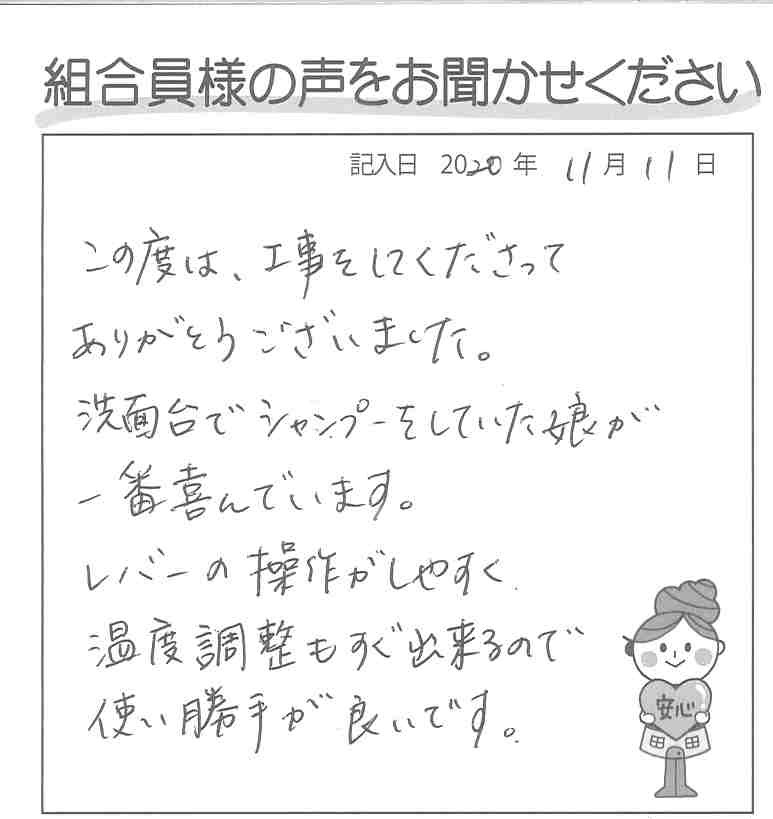 組合員様の声をお聞かせください
記入日 2020年 11月11日
この度は、工事をしてくださって
ありがとうございました。
洗面台でシャンプーをしていた娘が
一番喜んでいます。
レバーの操作がしやすく
温度調整もすぐ出来るので
使い勝手が良いです。
安心